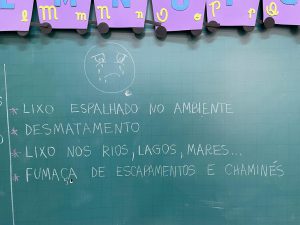 * LIXO ESPALHADO NO AMBIENTE
* DESMATAMENTO
* LIXO NOS RIOS, LAGOS, MARES...
* FUMAÇA DE ESCAPAMENTOS E CHAMINÉS